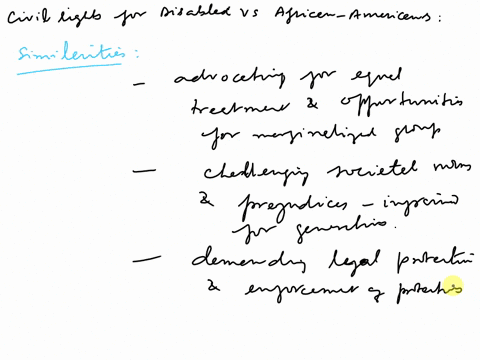 Civil rights for Disabled vs African-Americans:
Similarities:
- advocating for equal
treatment & opportunities
for marginalized group
- challenging societal norms
& prejudices - ingrained
for generations.
- demanding legal protection
& enforcement of protections